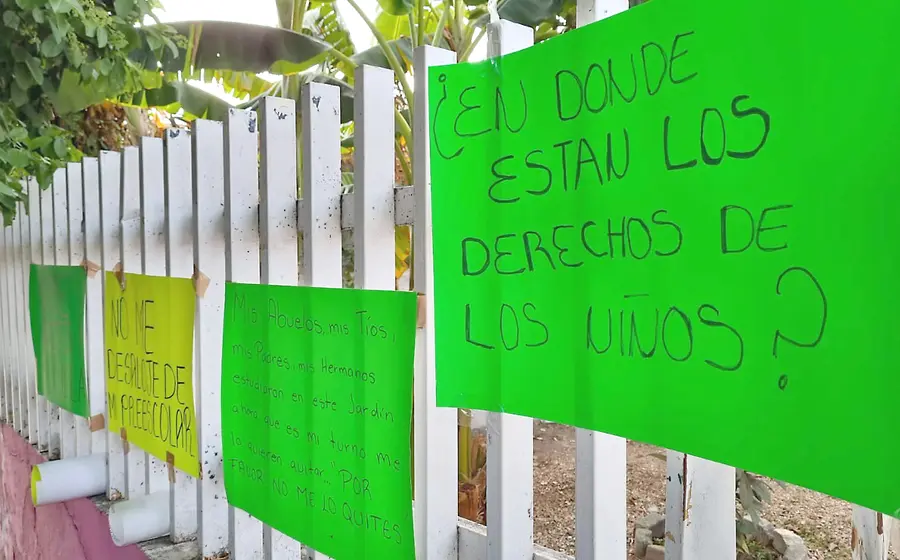 ¿EN DONDE
ESTAN LOS
DERECHOS DE
LOS NIÑOS?
Mis Abuelos, mis Tíos,
mis Padres, mis Hermanos
estudiaron en este Jardín
ahora que es mi turno me
lo quieren quitar..." POR
FAVOR NO ME LO QUITES
NO ME
DESALOJE DE
MI PREESCOLAR